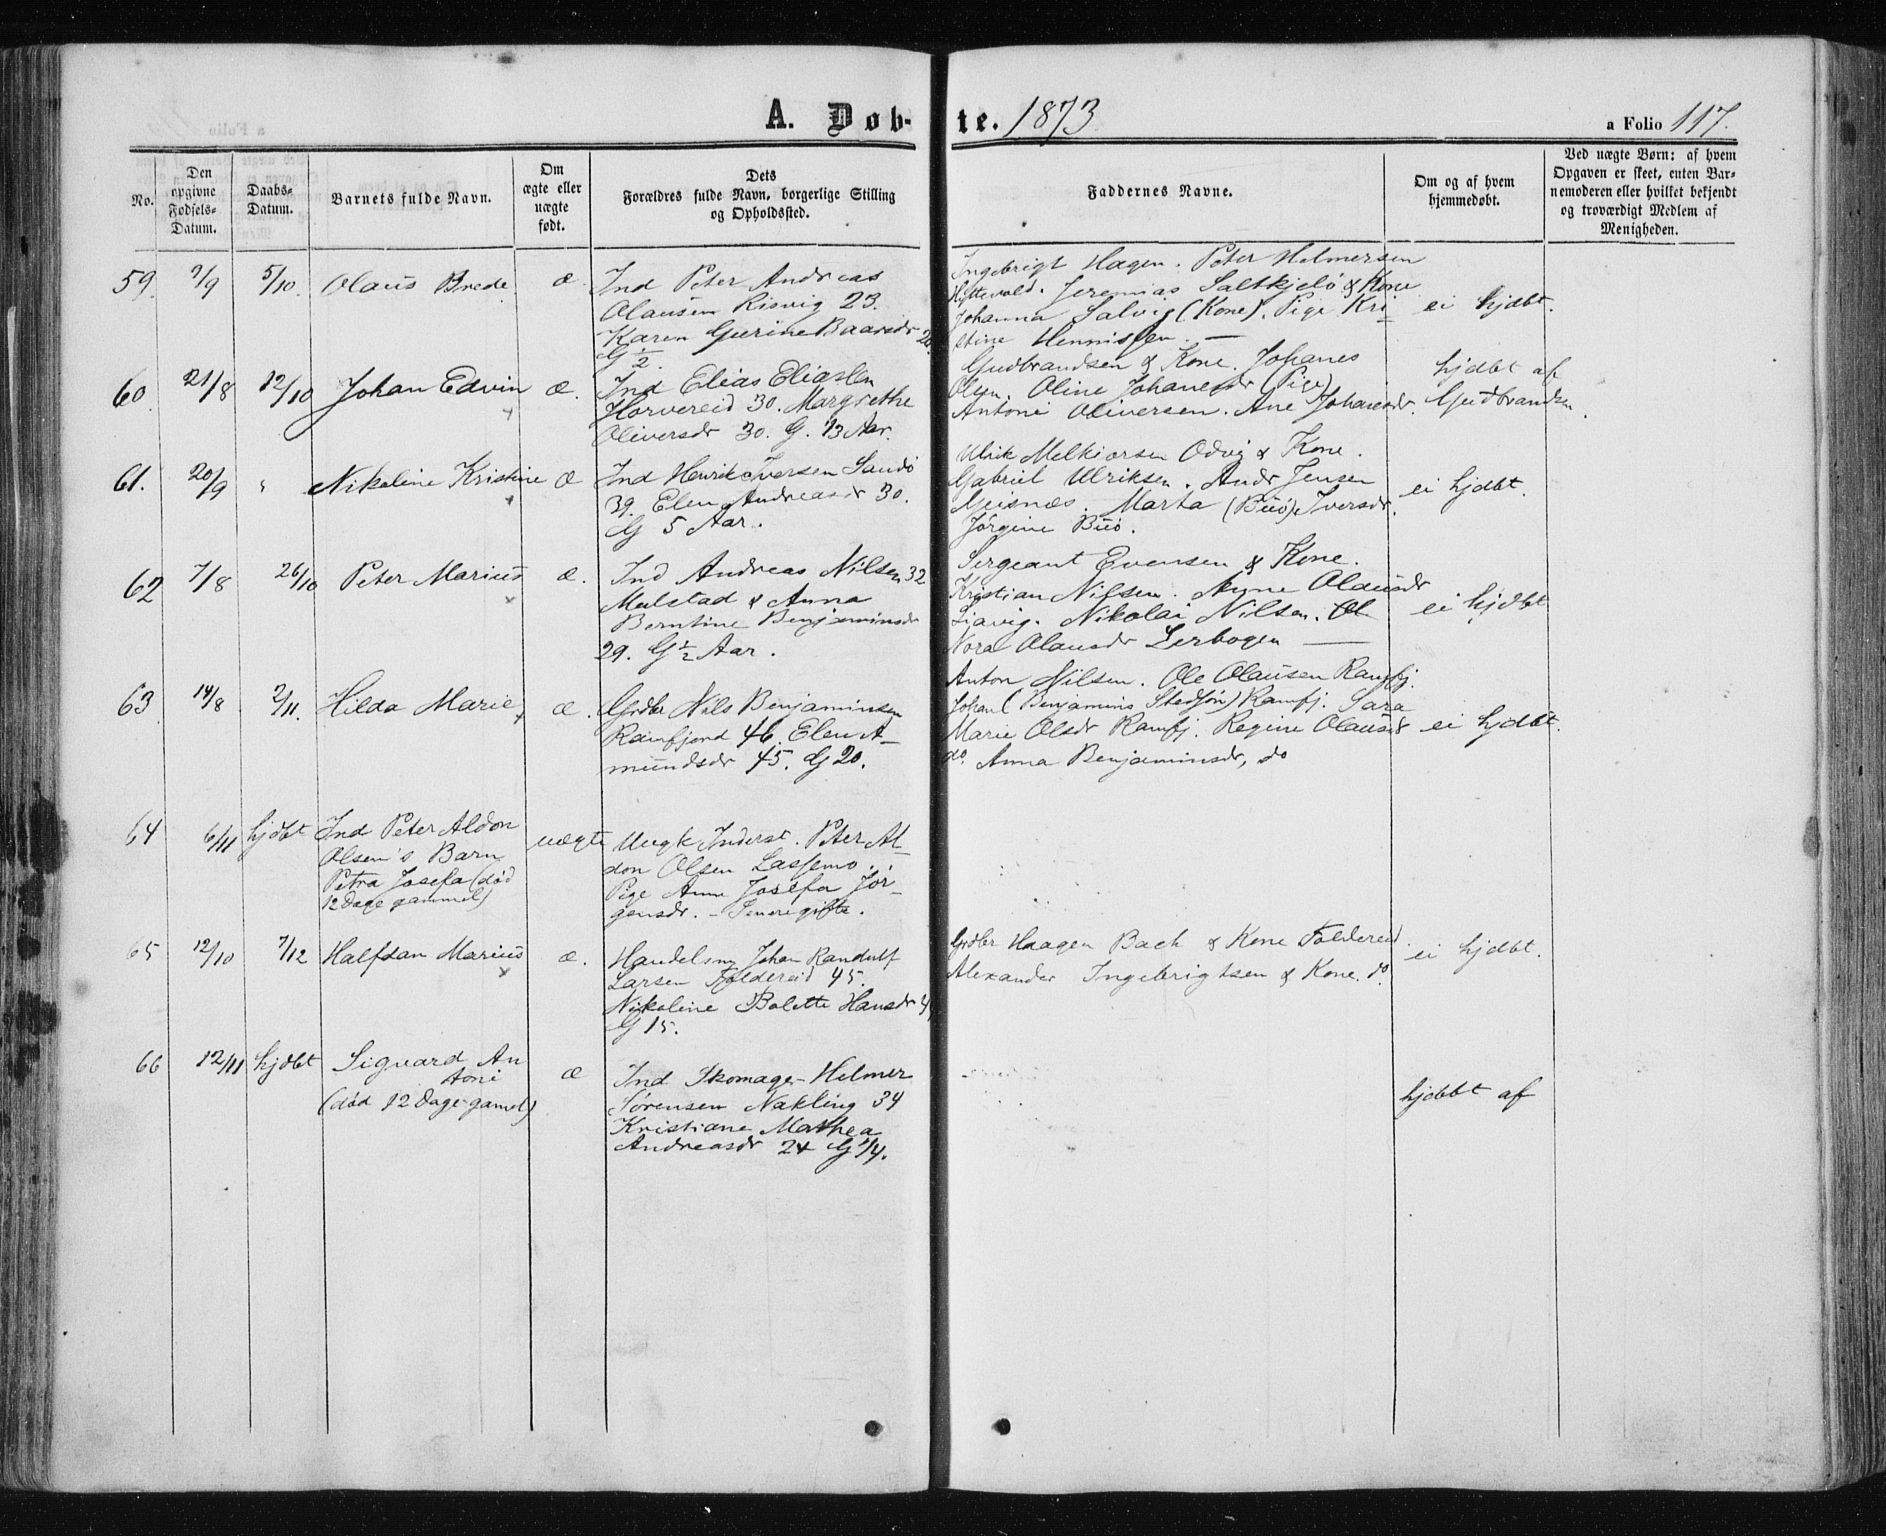 A. Døb-te. 1873 a Folio 117.
No.
Den opgivne Fødsels-Datum.
Daabs-Datum.
Barnets fulde Navn.
Om ægte eller uægte født.
Dets Forældres fulde Navn, borgerlige Stilling og Opholdssted.
Faddernes Navne.
Om og af hvem hjemmedøbt.
Ved uægte Børn: af hvem Opgaven er skeet, enten Barnemoderen eller hvilket bekjendt og troværdigt Medlem af Menigheden.
59. 9/9 5/10 Olaus Brede æ
Ind Peter Andreas
Olausen Risvig 23.
Karen Gurine Baardsdr 20.
G ½.
Ingebrigt Hagen. Peter Helmersen
Jeremias Saltkjelø & Kone
Johanna Salvig (Kone). Pige Kri-
stine Hennissen. —
ei hjdbt.
60. 21/8 12/10 Johan Edvin æ.
Ind Elias Eliassen
Horvereid 30. Margrethe
Oliversdr 30. G. 13 Aar.
Gudbrandsen & Kone. Johanes
Olsen. Oline Johanesdr (Pige)
Antoni Oliversen. Ane Johanesdr.
hjdbt af
Gudbrandsen.
61. 20/9 " Nikoline Kristine æ
Ind Henrik Iversen Sandø
39. Elen Andreasdr 30.
G 5 Aar.
Ulrik Melkiorsen Odvig & Kone.
Gabriel Ulriksen. Andr Jensen
Geisnæs. Marta (Buø) Iversdr.
Jørgine Buø.
ei hjdbt.
62 7/8 26/10 Peter Marius æ.
Ind Andreas Nilsen 32
Mulstad & Anna
Berntine Benjaminsdr
29. G ½ Aar.
Sergeant Evensen & Kone.
Kristian Nilsen. Olausdr
Nikolai Nilsen. Ol
Nora Olausdr Lerbogen —
ei hjdbt
63 14/8 2/11. Hilda Marie æ.
Grdbr Nils Benjaminsen
Ramfjord 46. Elen A-
mundsdr 45. G 20.
Anton Nilsen. Ole Olausen Ramfj.
Johan (Benjamins Stedsøn) Ramfj. Sara
Marie Olsdr Ramfj. Regine Olausdr
do. Anna Benjaminsdr, do
ei hjdbt.
64 6/11 hjdbt Ind Peter Aldon
Olsen's Barn
Petra Josefa (død
12 Dage gammel)
uægte
Ungk Inderst. Peter Al-
don Olsen Lassemo.
Pige Anne Josefa Jør-
gensdr. – Senere gifte.
65 12/10 7/12 Halfdan Marius æ.
Handelsm Johan Randulf
Larsen Foldereid 45.
Nikoline Bolette Hansdr
G 15.
Grdbr Haagen Bach & Kone Foldereid.
Alexander Ingebrigtsen & Kone. do.
ei hjdbt.
66 12/11 hjdbt Siguard An
toni
(død 12 Dage gamel)
æ
Ind Skomager Helmer
Sørensen Nakling 34
Kristiane Mathea
Andreasdr 24 G ¼.
hjdbt af